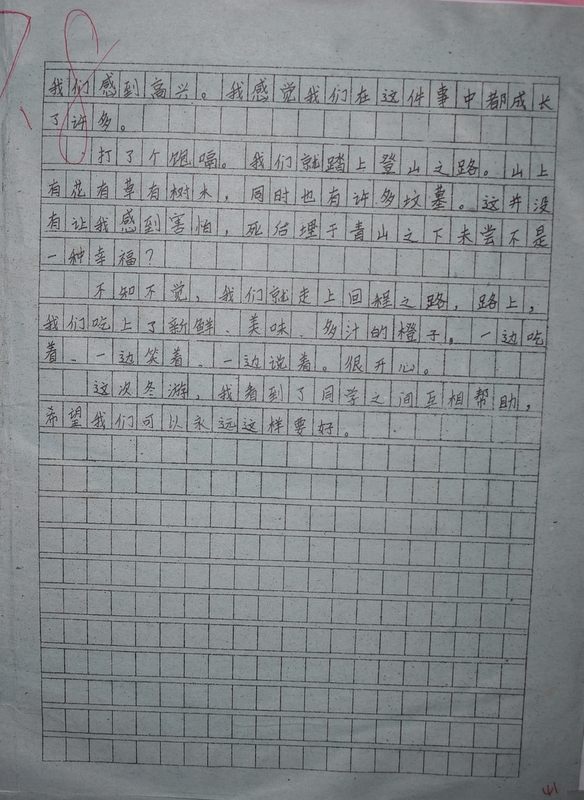 我们感到高兴。我感觉我们在这件事中都成长
了许多。
打了个饱嗝。我们就踏上登山之路。山上
有花有草有树木，同时也有许多坟墓。这并没
有让我感到害怕，死后埋于青山之下未尝不是
一种幸福？
不知不觉，我们就走上回程之路，路上，
我们吃上了新鲜、美味、多汁的橙子，一边吃
着、一边笑着、一边说着。很开心。
这次冬游，我看到了同学之间互相帮助，
希望我们可以永远这样要好。